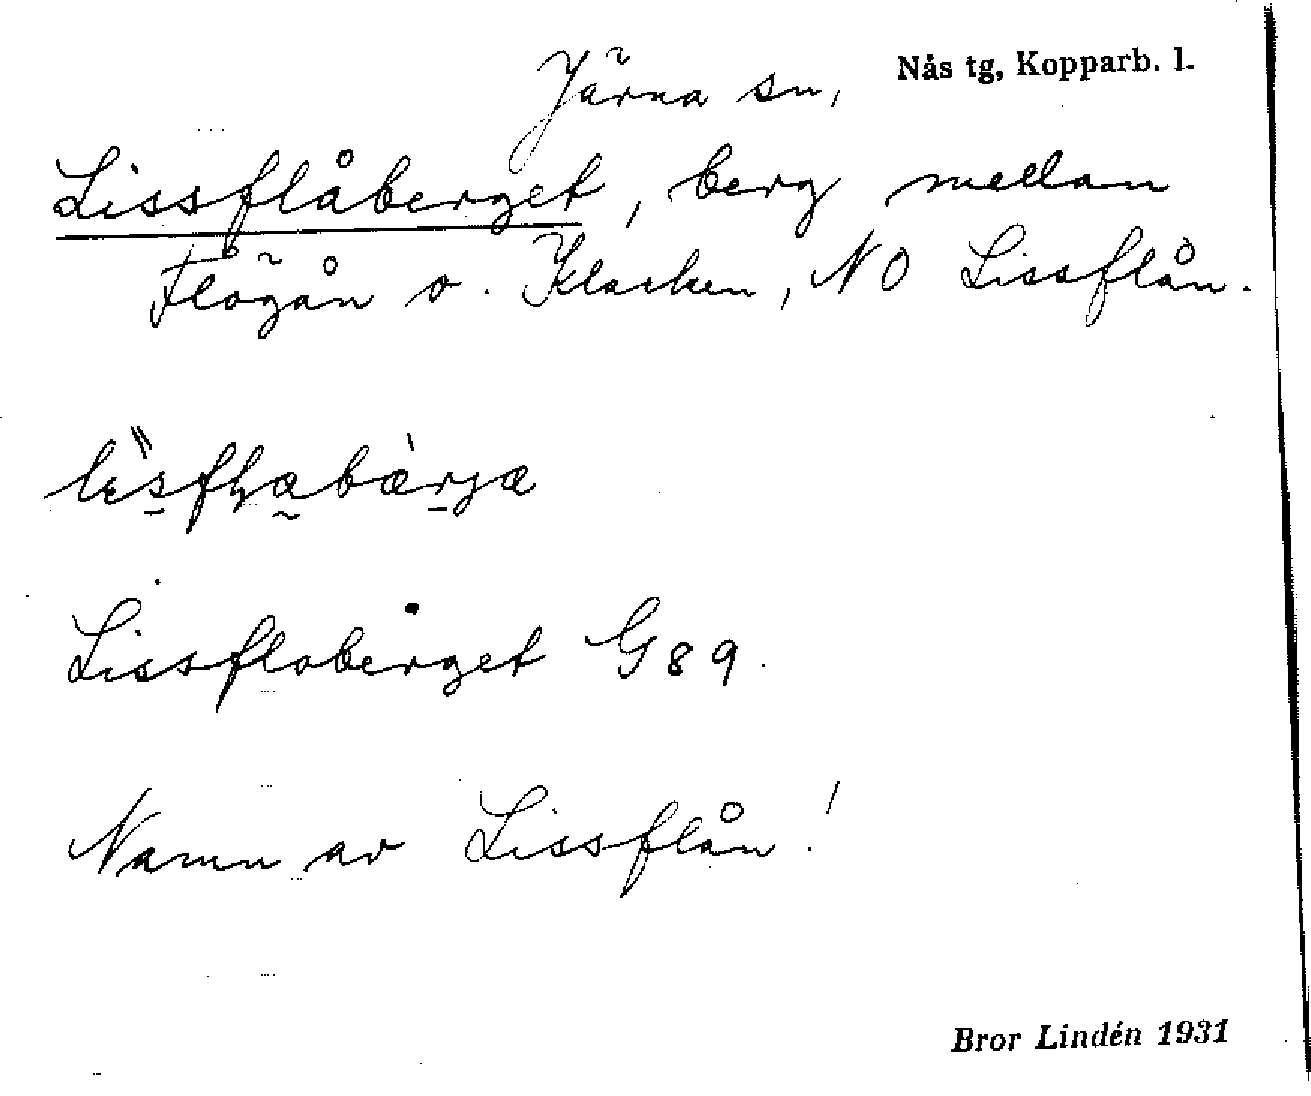 Järna sn, Nås tg, Kopparb. l.
Lissflåberget, berg mellan
Flögån o. Klacken, NO Lissflån.
Lissfloberget G89.
Namn av Lissflån!
Bror Lindén 1931